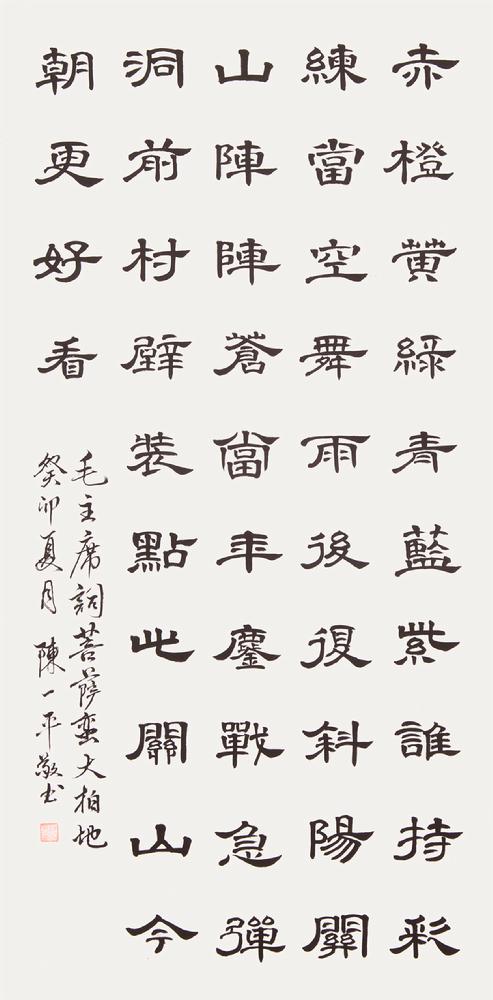 赤橙黃綠青藍紫誰持彩
練當空舞雨後復斜陽關
山陣陣蒼當年鏖戰急彈
洞前村壁裝點此關山今
朝更好看
毛主席詞菩薩蛮大柏地
癸卯夏月 陳一平敬书